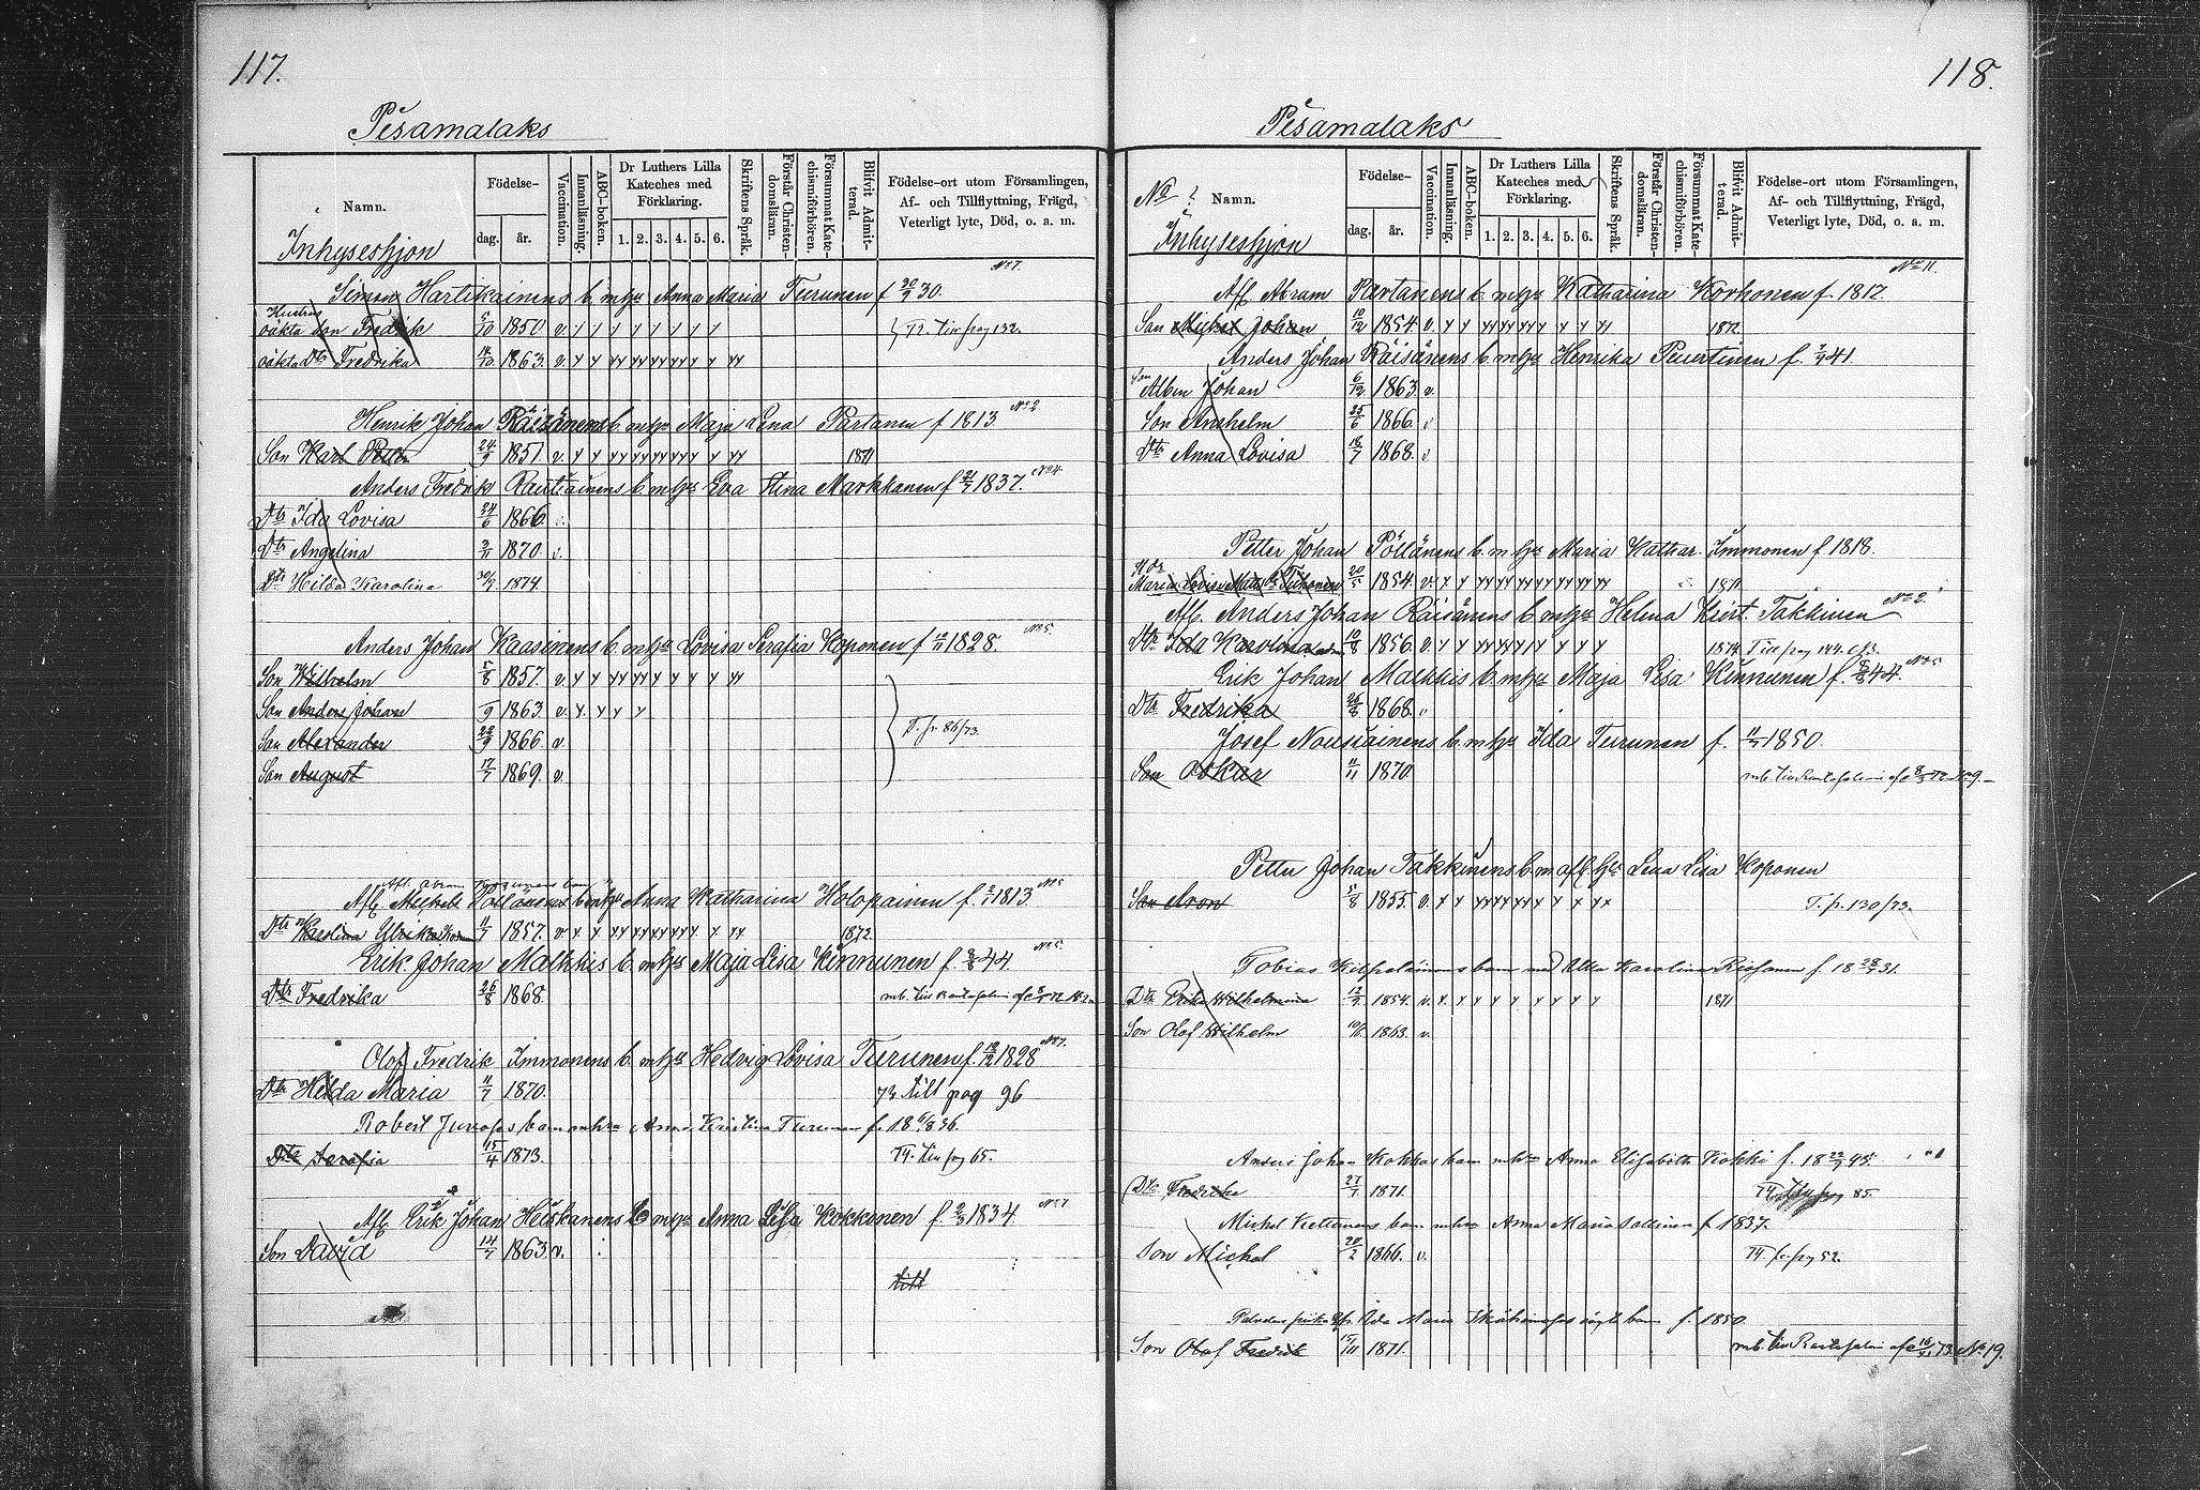 117.
Pesamalaks
Namn.
Födelse-
dag.
år.
Vaccination.
Innanläsning.
ABC-boken.
Dr Luthers Lilla
Kateches med
Förklaring.
1. 2. 3. 4. 5. 6.
Skriftens Språk.
Förstår Christen-
domsläran.
Försummat Kate-
chismiförhören.
Blifvit Admit-
terad.
Födelse-ort utom Församlingen,
Af- och Tillflyttning, Frägd,
Veterligt lyte, Död, o. a. m.
Inhyseshjon
No 7.
Simon Hartikainens b. m hu Anna Maria Turunen f 20/9 30.
Hustrus
oäkta son Fredrik 5/10 1850 v.
oäkta Dtr Fredrika 14/10 1863. v.
No 2
Henrik Johan Räisänens b. m hu Maja Lena Partanen f 1813.
Son Karl Petter 24/9 1851. v. 1871
Anders Fredrik Rautiainens b. m hu Eva Stina Markkanen f 21/7 1837. No 4
Dtr Ida Lovisa 24/6 1866.
Dtr Angelina 3/11 1870 v.
Dtr Hilda Karolina 30/3 1874
Anders Johan Kaasinens b. m hu Lovisa Serafia Koponen f 12/11 1828. No 5.
Son Wilhelm 5/8 1857. v.
Son Anders Johan 9 1863 v.
Son Alexander 22/9 1866 v.
T. p. 86/73.
Son August 17/7 1869 v.
Afl. Michels Pöllänens b. m hu Anna Katharina Holopainen f. 2/1 1813. No 5
Dtr Karolina Ulrika 11/7 1857. v 1872.
Erik Johan Malkkis b. m hu Maja Lisa Kinnunen f. 8/8 44. No 5.
Dtr Fredrika 26/8 1868.
Olof Fredrik Immonens b. m hu Hedvig Lovisa Turunen f. 12/12 1828 No 7.
Dtr Hilda Maria 11/7 1870. 72 till pag 96
Robert Juvas barn m hu Anna Kristina Turunen f. 18 6/8 36.
Dtr Serafia 15/4 1873. 74. till pag 65.
Afl. Erik Johan Heiskanens b m hu Anna Lisa Kokkonen f. 2/3 1834. No 7
Son David 14/7 1863 v.
till
118.
Pesamalaks
No ? Namn.
Födelse-
dag.
år.
Vaccination.
Innanläsning.
ABC-boken.
Dr Luthers Lilla
Kateches med
Förklaring.
1. 2. 3. 4. 5. 6.
Skriftens Språk.
Förstår Christen-
domsläran.
Försummat Kate-
chismiförhören.
Blifvit Admit-
terad.
Födelse-ort utom Församlingen,
Af- och Tillflyttning, Frägd,
Veterligt lyte, Död, o. a. m.
Inhyseshjon
No 11.
Afl. Abram Partanens b. m hu Katharina Korhonen f. 1812.
Son Michel Johan 10/12 1854. v. 1872
Anders Johan Räisänens b. m hu Henrika Puurtinen f. 2/4 41.
Son Albin Johan 6/12 1863. v.
Son Anshelm 25/6 1866. v
Dtr Anna Lovisa 18/7 1868. v
Petter Johan Pöllänens b. m hu Maria Kathar. Immonen f 1818.
20/5 1854. v. 1871
Afl. Anders Johan Räisänens b. m hu Helena Krist. Takkinen No 2.
Dtr Ida Karolina 10/8 1856. v. 1874 Till pag 144.
Erik Johan Malkkis b. m hu Maja Lisa Kinnunen f. 8/8 44. No 5
Dtr Fredrika 26/8 1868. v
Josef Nousiainens b. m hu Ida Turunen f. 11/7 1850.
Son Oskar 11/11 1870.
Petter Johan Takkinens b. m afl. hu Lena Lisa Koponen
Son Aron 5/8 1855. v. T. p. 130/73.
Tobias barn med Ulla Karolina f 18 28/7 31.
Dtr Erika Wilhelmina 12/9 1854. v. 1871
Son Olof Wilhelm 10/6 1863. v.
Anders Johan Kokkos barn m hu Anna Elisabeth Kokki f. 18 22/7 45.
Dtr Fredrika 27/7 1871. 74 till pag 85.
Michel barn m hu Anna Maria Sallinen f. 1837.
Son Michel 20/2 1866. v. 74. p. pag 52.
f. 1850
Son Olof Fredrik 15/11 1871. No 19.